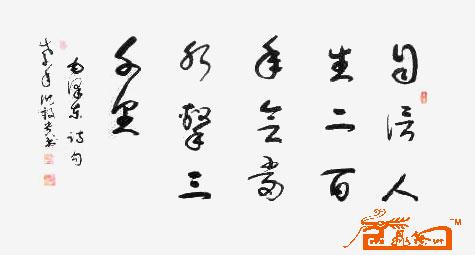 自信人
生二百
年会当
水擊三
千里
毛泽东诗句
TM